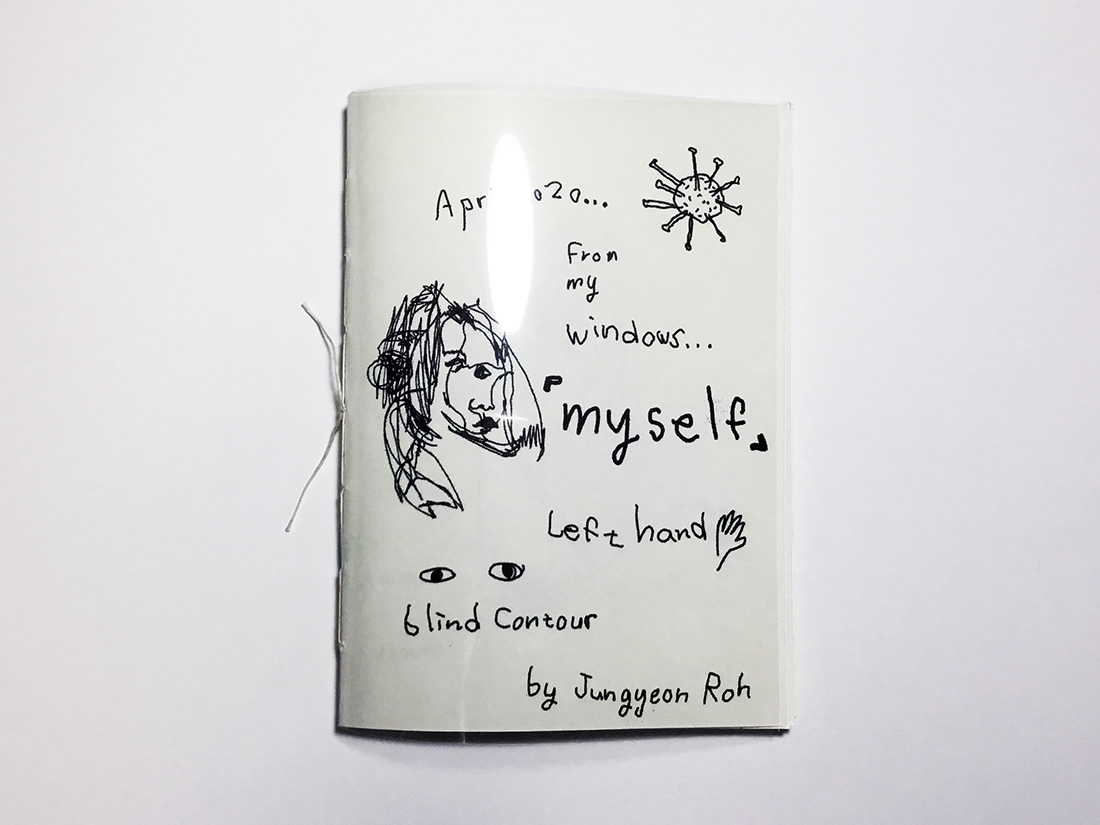 Apr 020...
From
my
windows...
「myself」
Left hand
blind Contour
by Jungyeon Roh